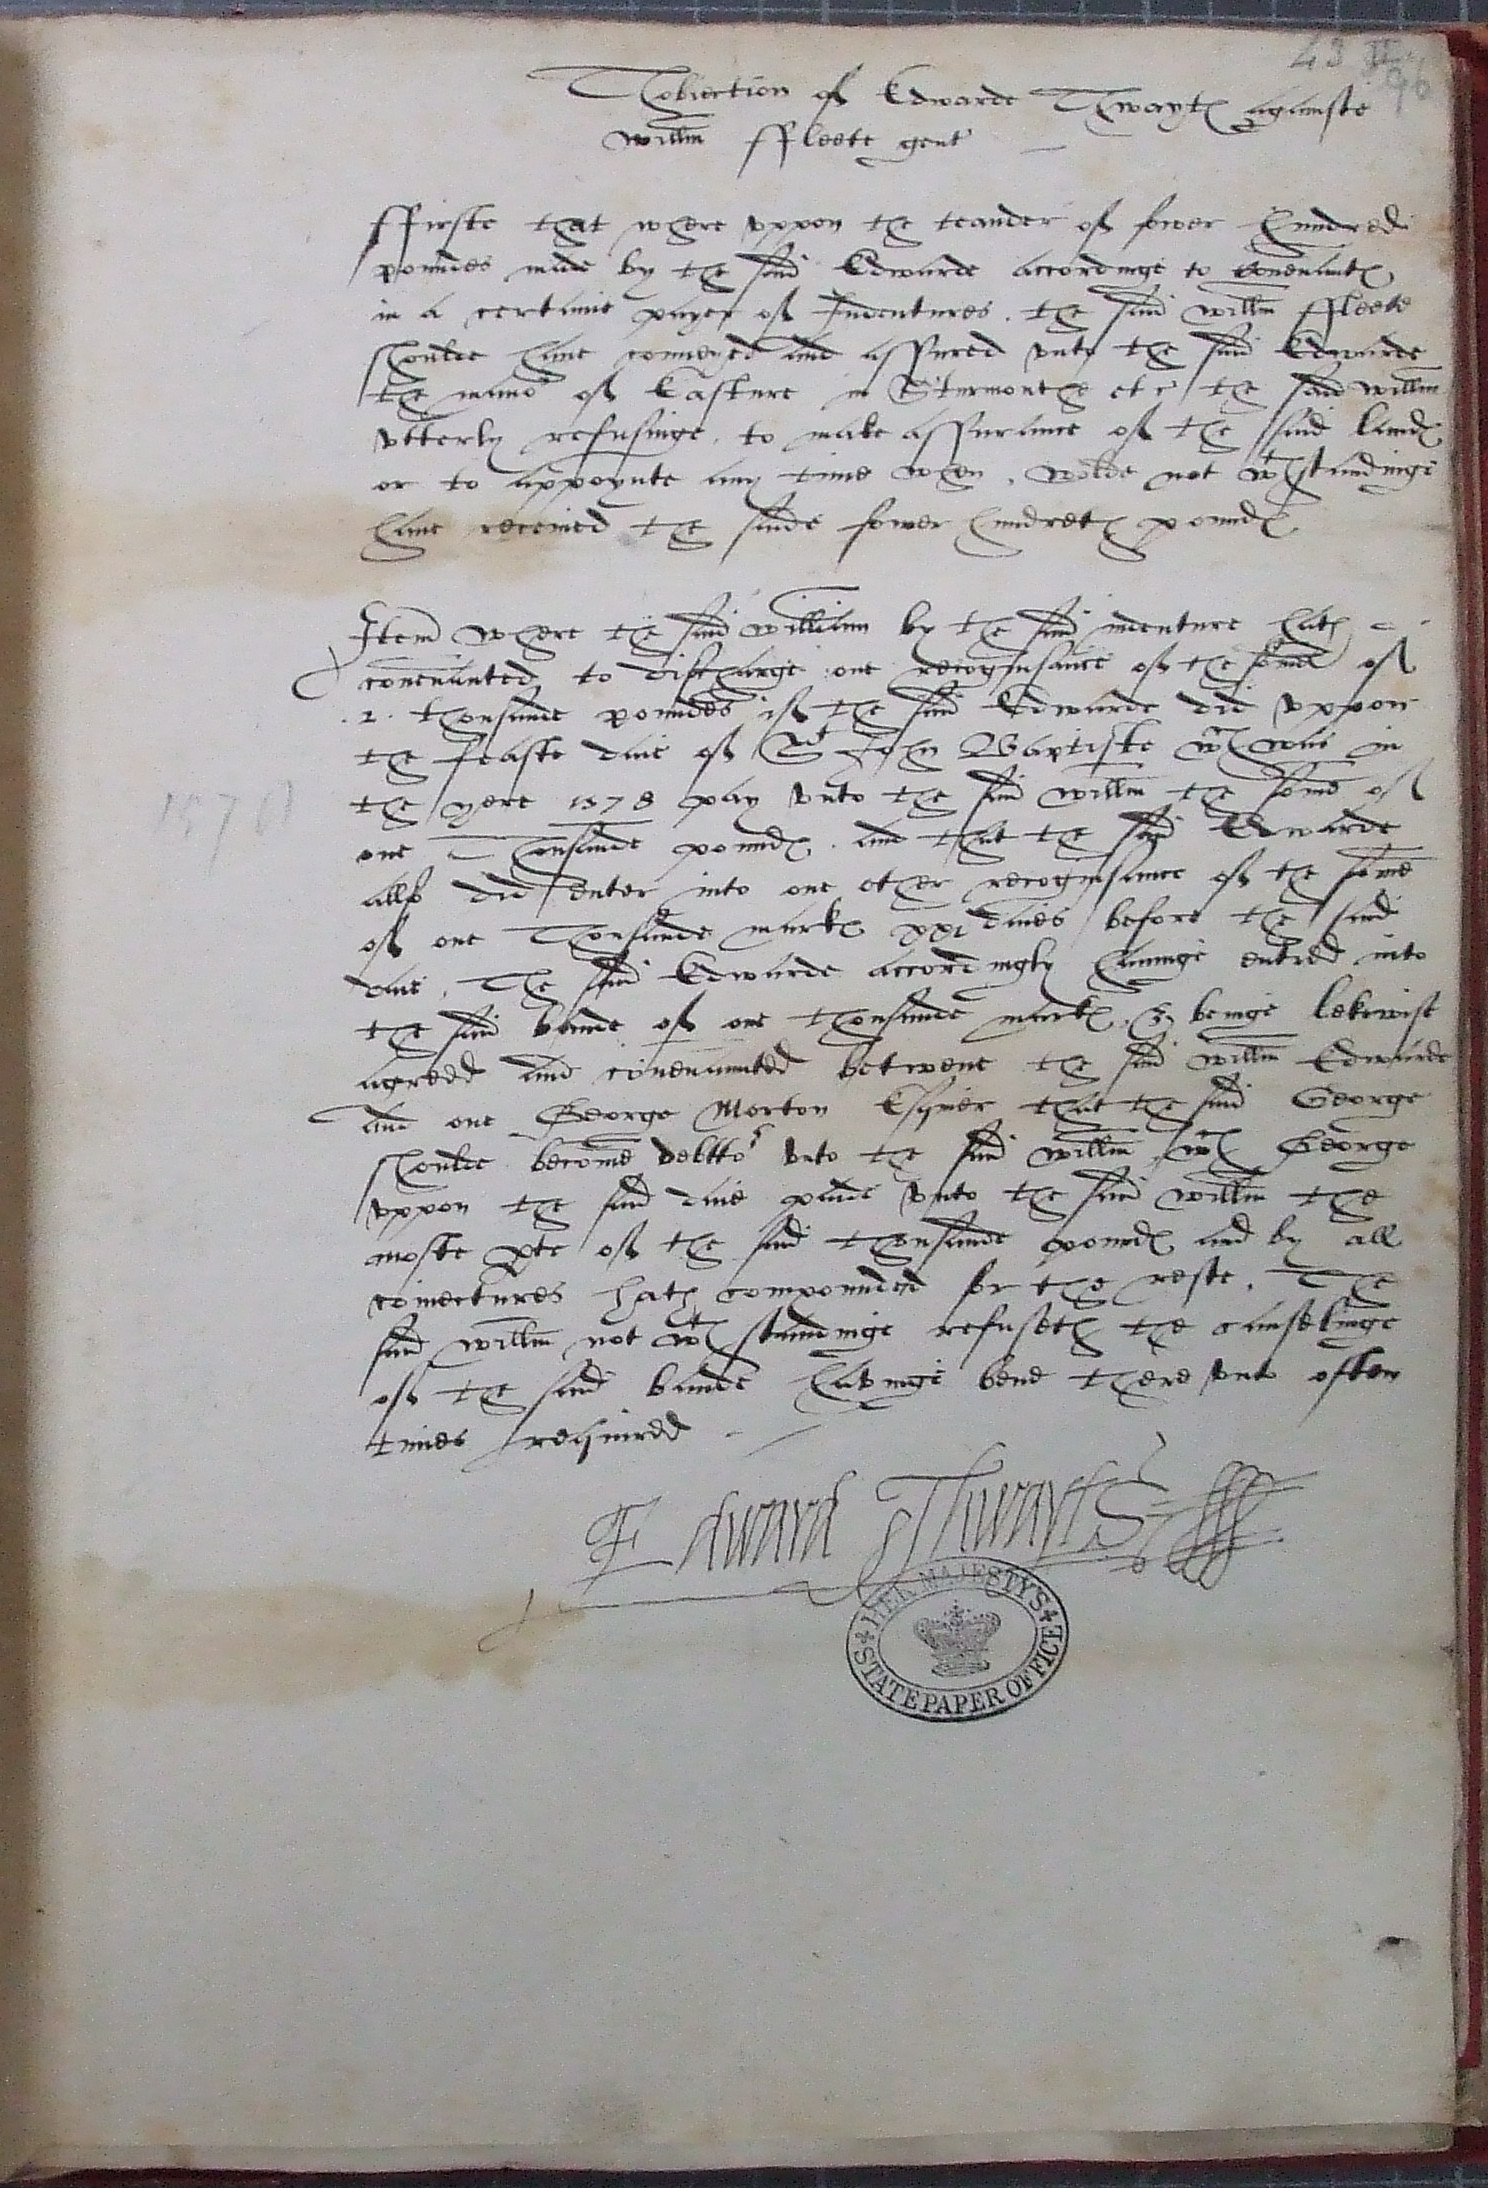 43 II
96
Thobiection of Edwarde Thwayts againste
Willm ffleete gent
ffirste that where vppon the teander of fower hundred
poundes made by the said Edwarde accordinge to Couenants
in a certaine payer of Indentures. the said Willm ffleete
shoulde haue conueyed and assured vnto the said Edwarde
the mano of Casture in Sturmouthe etc the said Willm
vtterly refusinge. to make assurance of the said lands
or to appoynte any time when, wolde not wthstandinge
haue receiued the saide fower hundreth pounds
Item where the said William by the said indenture hath
couenanted to discharge one recognisance of the some of
.2. thousande poundes if the said Edwarde did vppon
the feaste daie of St John Baptiste wch was in
the yere 1578 pay vnto the said Willm the some of
one Thousande pounds. and that the said Edwarde
allso did enter into one other recognisance of the some
of one Thousande marks xxi daies before the said
daie, The said Edwarde accordingly hauinge entred into
the said bande of one thousande marks. & beinge lekwise
agreed and couenaunted betwene the said Willm Edwarde
and one George Morton Esquier that the said George
shoulde become debttor vnto the said Willm, wch George
vppon the said daie paide vnto the said Willm the
moste pte of the said thousande pounds and by all
coniectures hath compounded for the reste. The
said Willm not wthstandinge refuseth the canselinge
of the said bande havinge bene there vnto often
times requiredd
Edward Thwayts
1578
HER MAJESTY'S
STATE PAPER OFFICE